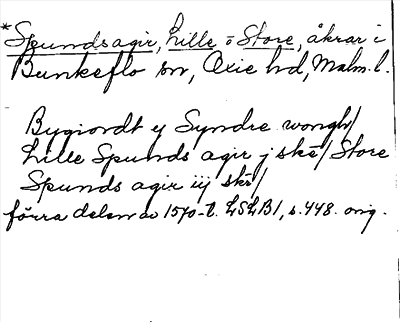 *Spunds agir, Lille o Store, åkrar i
Bunkeflo sn, Oxie hd, Malm. l.
Bygiordt ej Syndre wongh/
Lille Spunds agir j skē/ Store
Spunds agir iij skē/
förra delen av 1570-t. LSLB1, s. 448. orig.